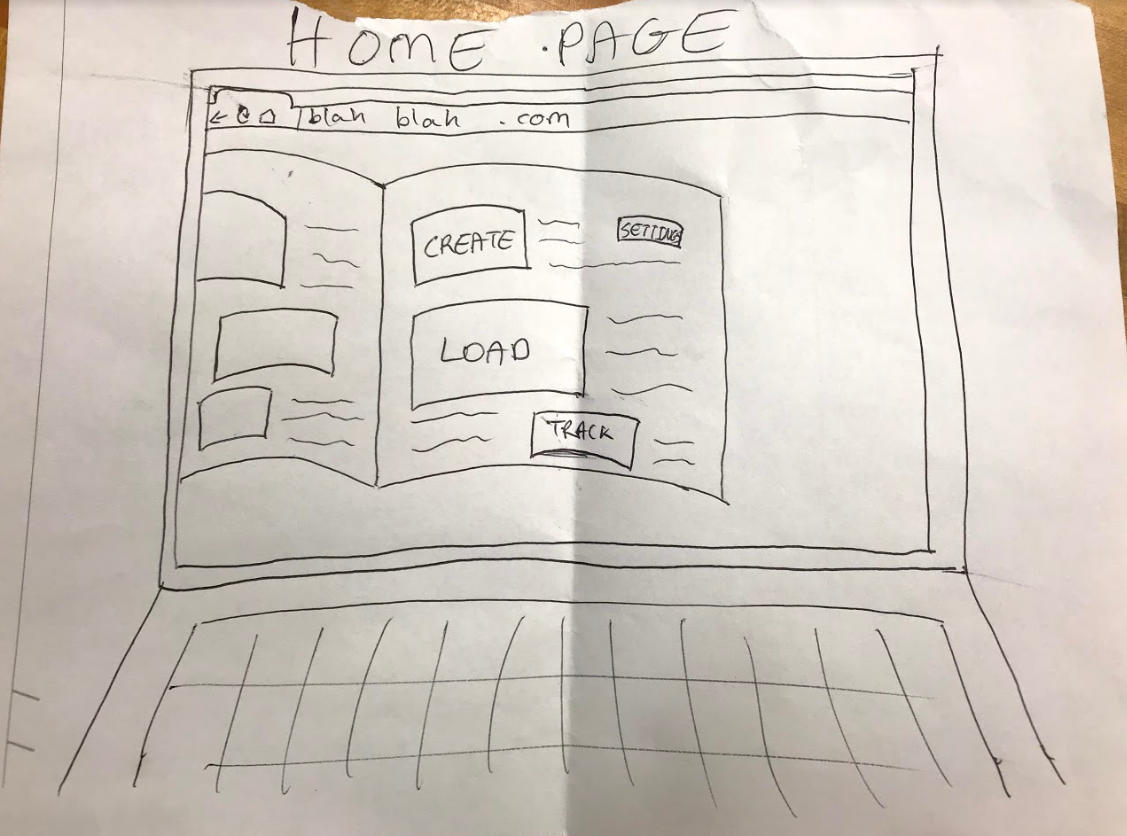 HOME .PAGE
blah blah .com
CREATE
SETTINGS
LOAD
TRACK